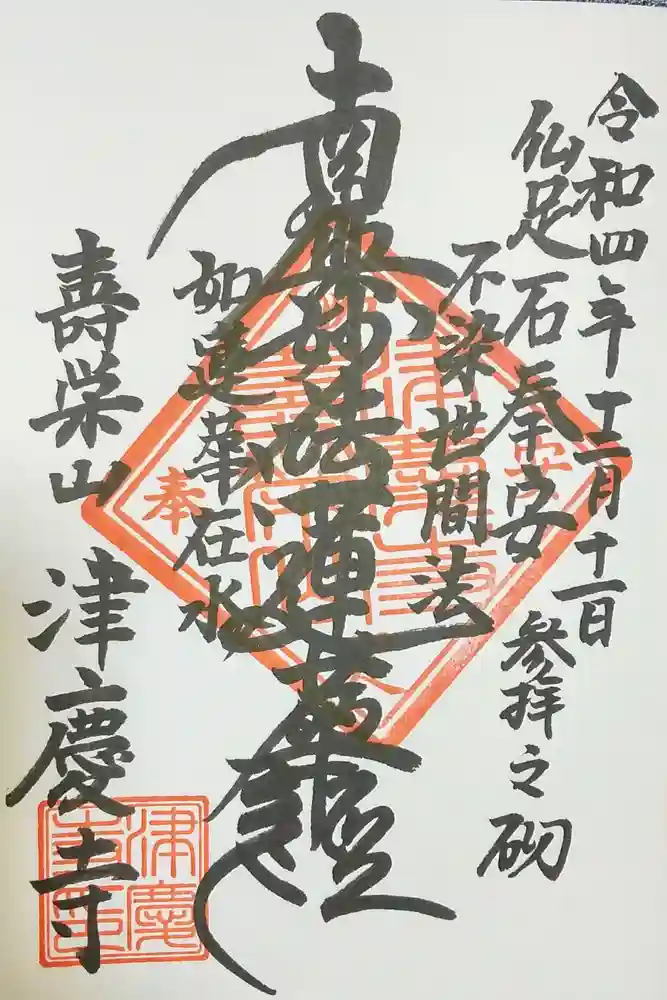 令和四年十二月十一日
仏足石奉安
参拝之砌
不染世間法
南無妙法蓮華經
如蓮華在水
壽栄山
津慶寺
奉
津慶